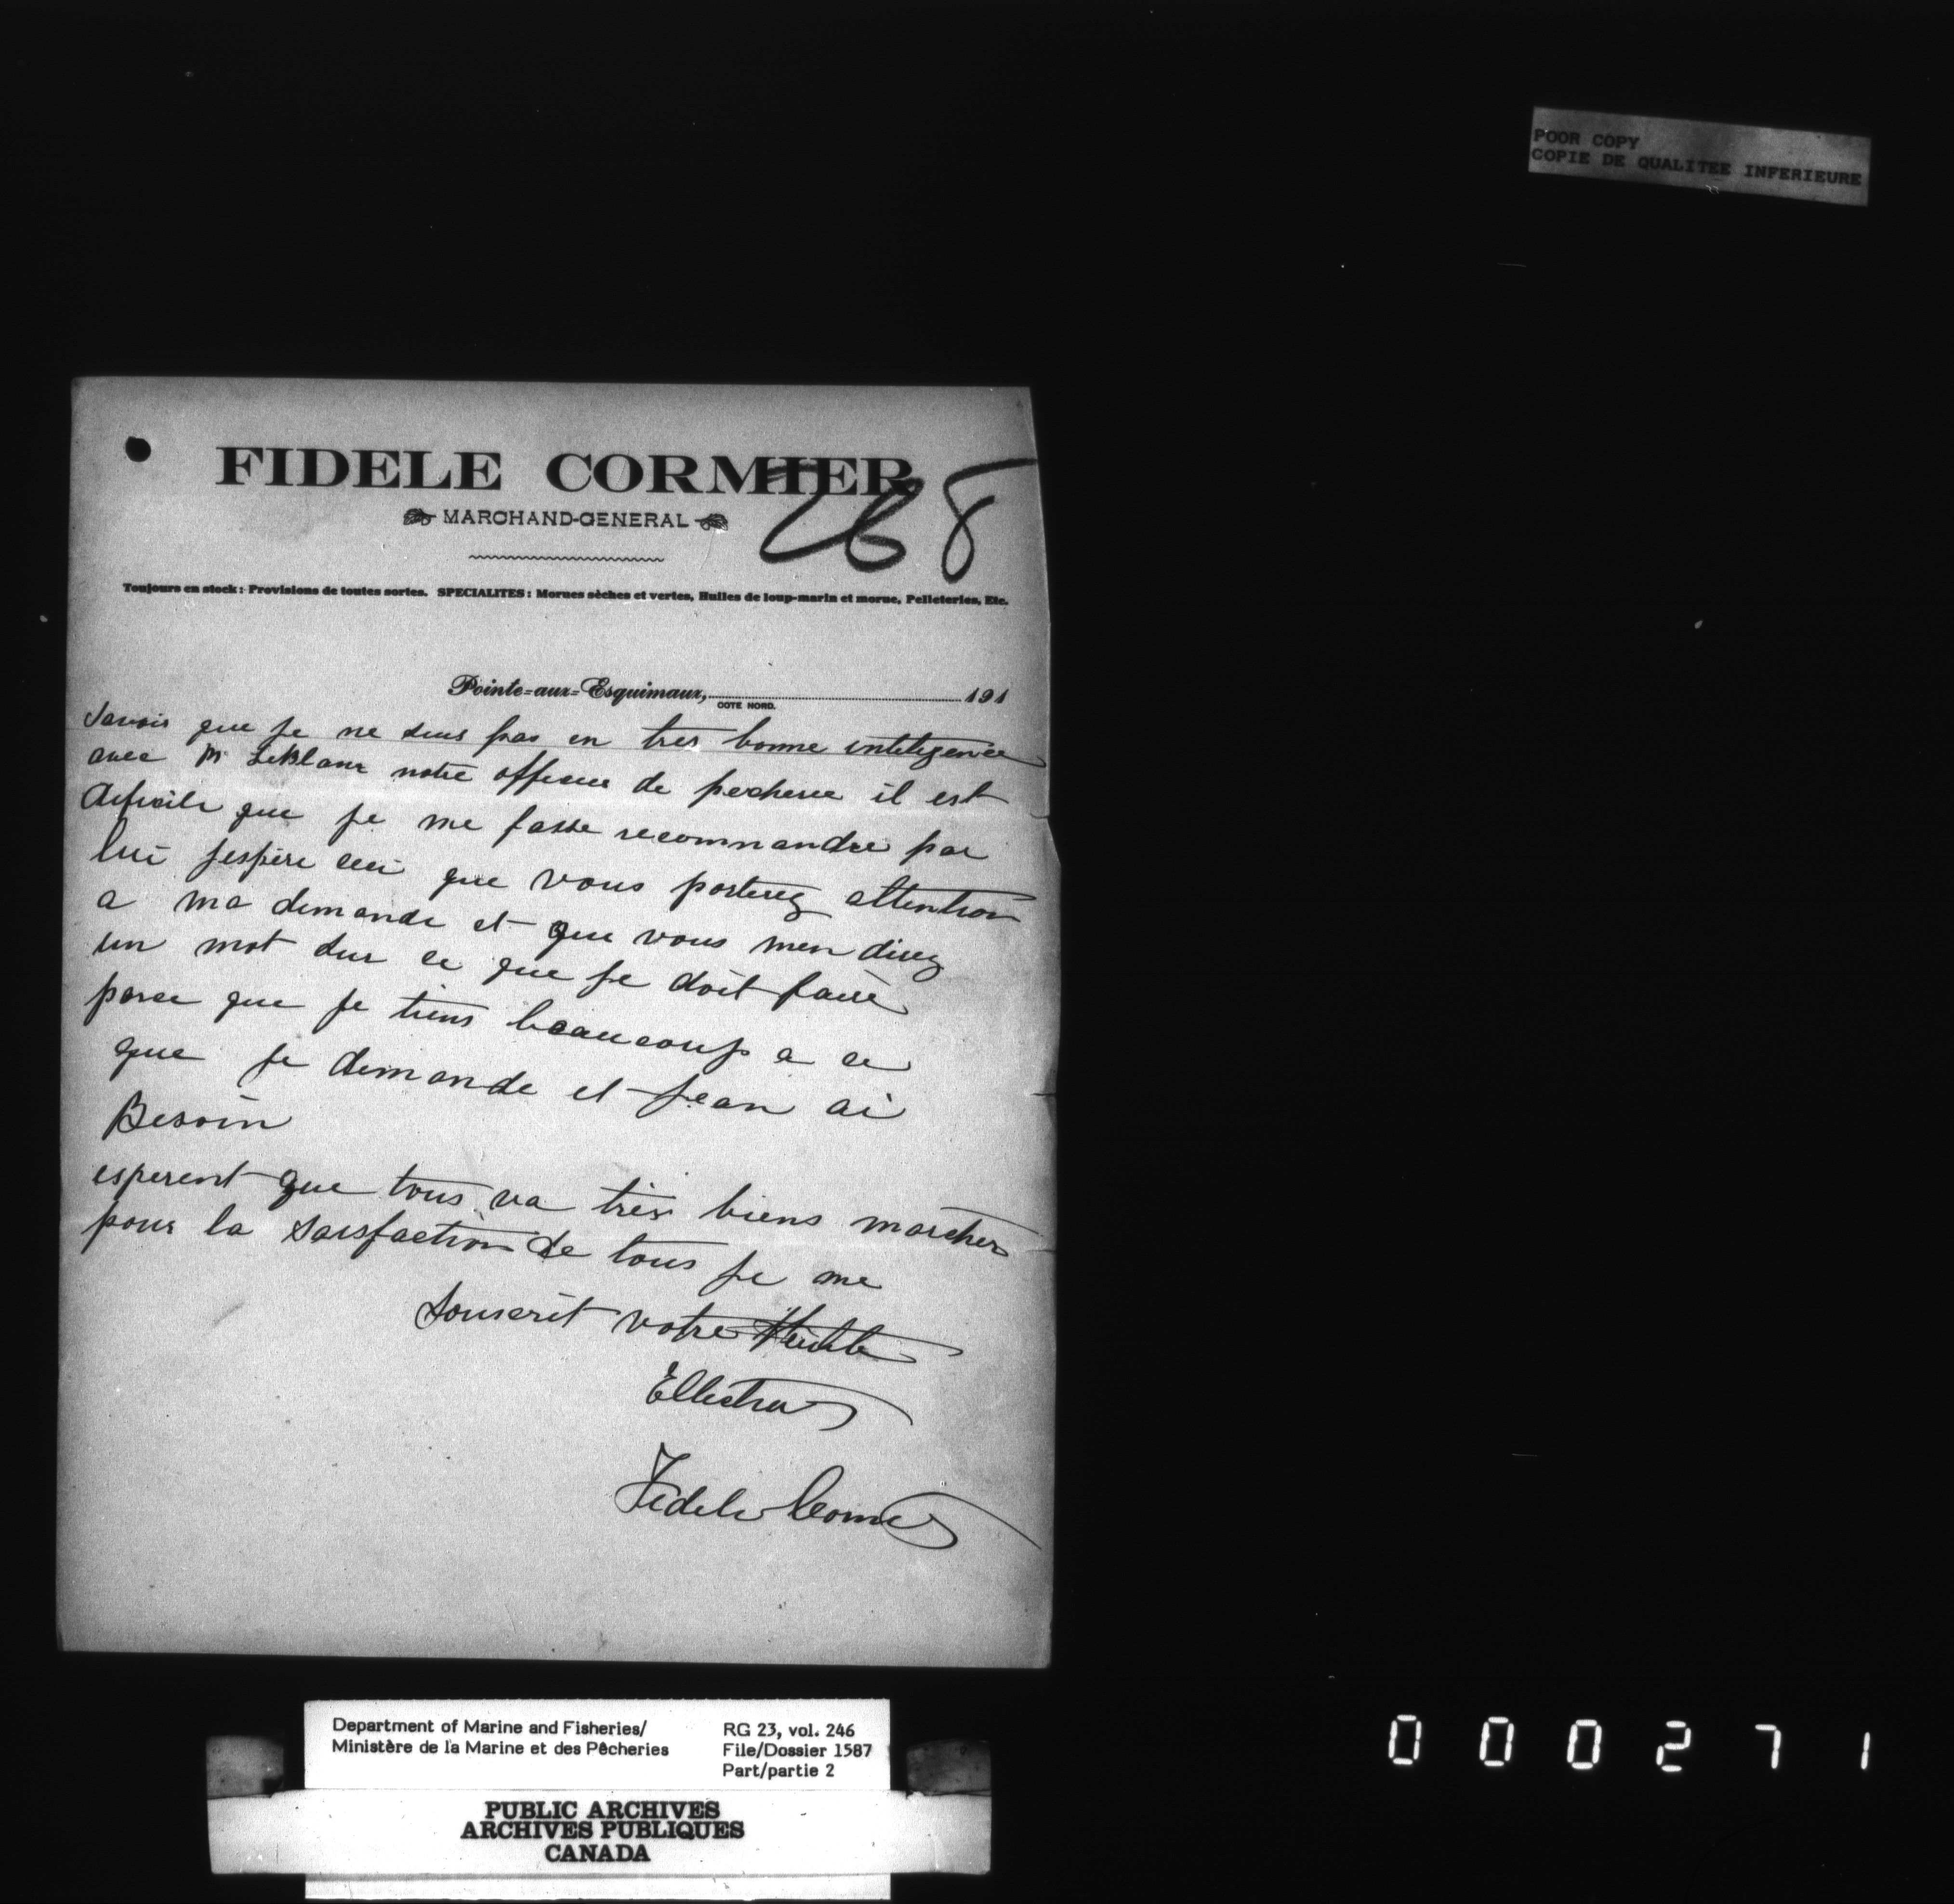 POOR COPY
COPIE DE QUALITEE INFERIEURE
FIDELE CORMIER
MARCHAND-GENERAL
268
Toujours en stock: Provisions de toutes sortes. SPECIALITES: Morues sèches et vertes, Huiles de loup-marin et morue, Pelleteries, Etc.
Pointe-aux-Esquimaux, 191
COTE NORD.
Savoir que je ne suis pas en tres bonne inteligence
avec M LeBlanc notre officeur de pecherie il est
dificile que je me fasse recommandre par
lui jespère ceci que vous porterez attention
a ma demande et que vous men direz
un mot sur ce que je doit faire
parce que je tiens beaucoup a ce
que je demande et jean ai
Besoin
esperent que tous va très biens marcher
pour la saisfaction de tous je me
souscrit votre
Ellecteur
Fidele Cormier
Department of Marine and Fisheries/
Ministère de la Marine et des Pêcheries
RG 23, vol. 246
File/Dossier 1587
Part/partie 2
PUBLIC ARCHIVES
ARCHIVES PUBLIQUES
CANADA
000271